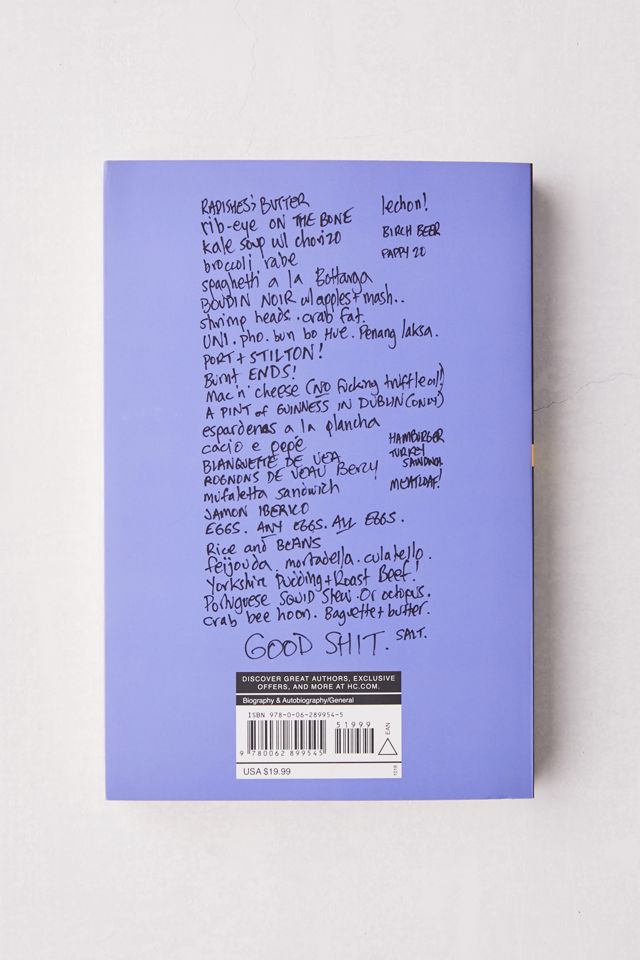 RADISHES & BUTTER
rib-eye ON THE BONE
kale soup w/ chorizo
broccoli rabe
spaghetti a la Bottarga
BOUDIN NOIR w/ apples + mash..
shrimp heads. crab fat.
UNI. pho. bun bo Hue. Penang laksa.
PORT + STILTON!
Burnt ENDS!
Mac 'n' cheese (NO fucking truffle oil!)
A PINT of GUINNESS IN DUBLIN (ONLY)
espardenas a la plancha
cacio e pepe
BLANQUETTE DE VEA
ROGNONS DE VEAU Bercy
mufaletta sandwich
JAMON IBERICO
EGGS. ANY EGGS. ALL EGGS.
Rice and BEANS
feijouda. mortadella. culatello.
Yorkshire Pudding + Roast Beef!
Portuguese SQUID Stew. Or octopus.
crab bee hoon. Baguette + butter.
SALT.
GOOD SHIT.
lechon!
BIRCH BEER
PAPPY 20
HAMBURGER
TURKEY
SANDWICH
MEATLOAF!
DISCOVER GREAT AUTHORS, EXCLUSIVE
OFFERS, AND MORE AT HC.COM.
Biography & Autobiography/General
ISBN 978-0-06-289954-5
51999
EAN
9 780062 899545
USA $19.99